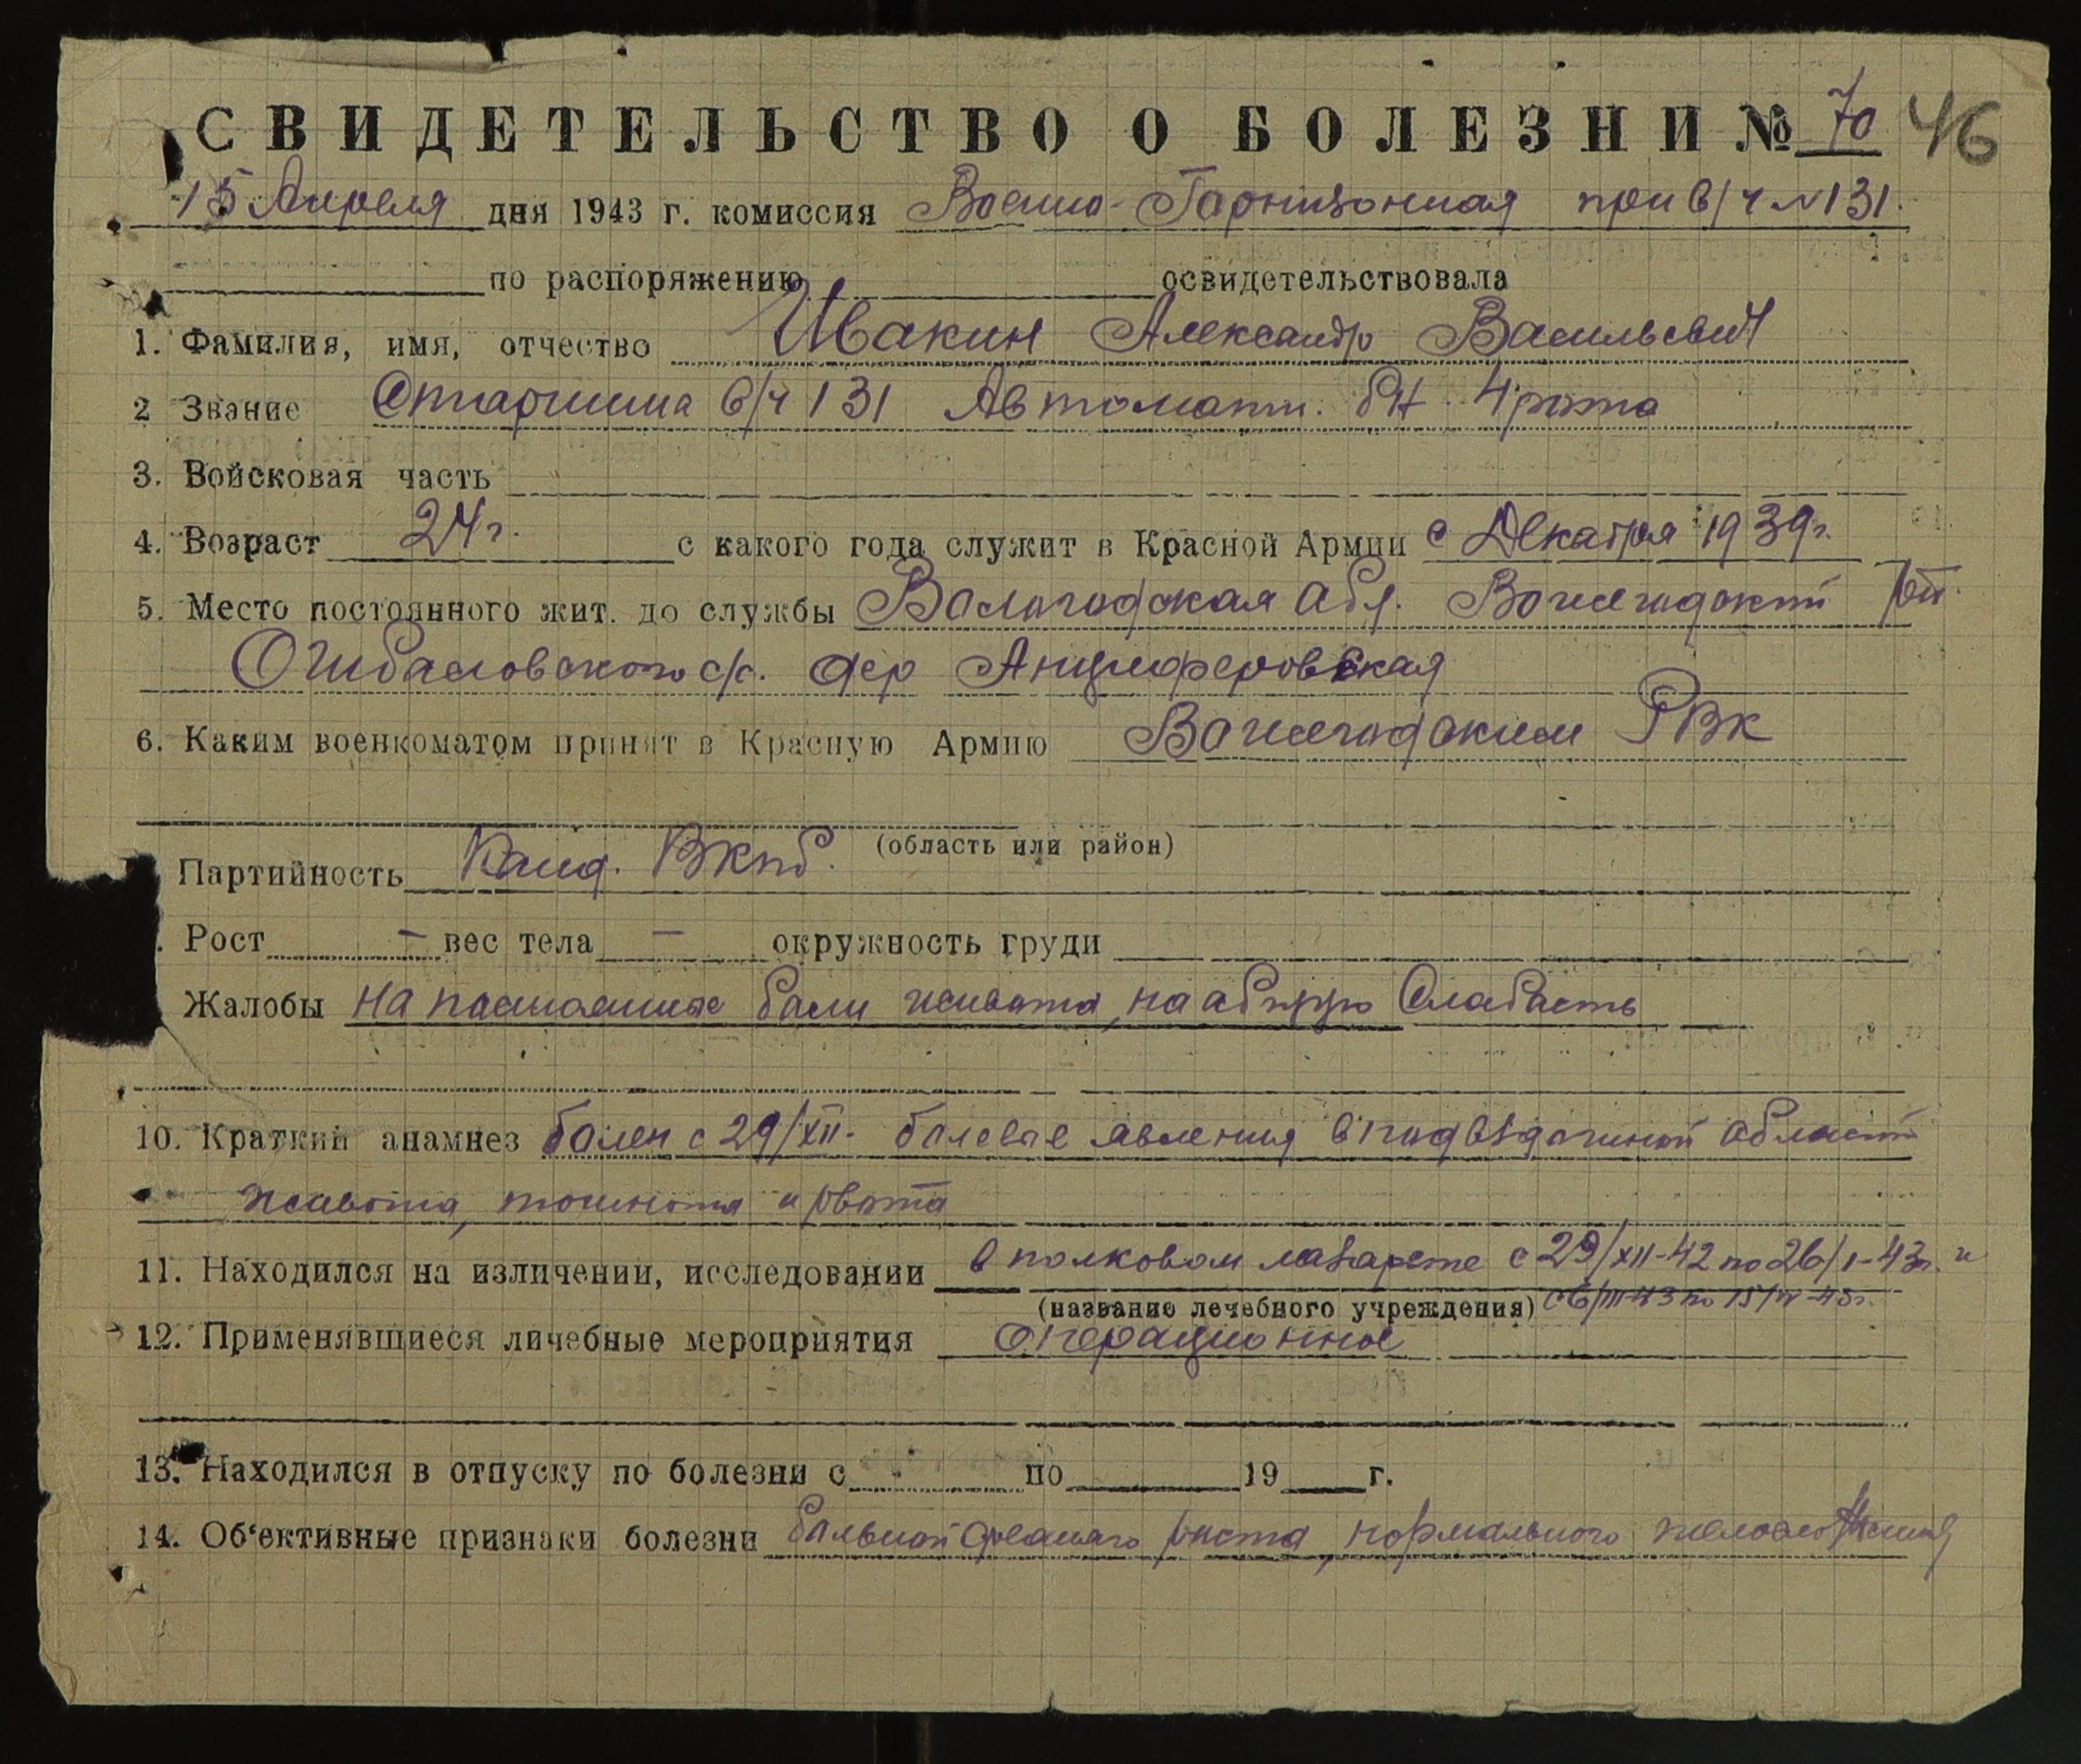 СВИДЕТЕЛЬСТВО О БОЛЕЗНИ № 70 46
15 Апреля дня 1943 г. комиссия Военно-Гарнизонная при в/ч №131.
по распоряжению освидетельствовала
1. Фамилия, имя, отчество Ивакин Александр Васильевич
2 Звание Старшина в/ч 131 Автоматн. бн. 4 рота
3. Войсковая часть
4. Возраст 24 г. с какого года служит в Красной Армии с Декабря 1939 г.
5. Место постоянного жит. до службы Вологодская обл. Вожегодский
с/с. дер Анциферовская
6. Каким военкоматом принят в Красную Армию Вожегодским РВК
(область или район)
Партийность Канд. ВКПб.
. Рост – вес тела – окружность груди
Жалобы на постоянные боли живота, на общую Слабость
10. Краткий анамнез болен с 29/XII- болевые явления в подвздошной области
живота, тошнота и рвота
11. Находился на изличении, исследовании в полковом лазарете с 29/XII-42 по 26/I-43г. и
(название лечебного учреждения) с 6/III-43 по 15/IV-43г.
12. Применявшиеся личебные мероприятия операционное
13. Находился в отпуску по болезни с по 19 г.
14. Об'ективные признаки болезни больной среднего роста, нормального телосложения